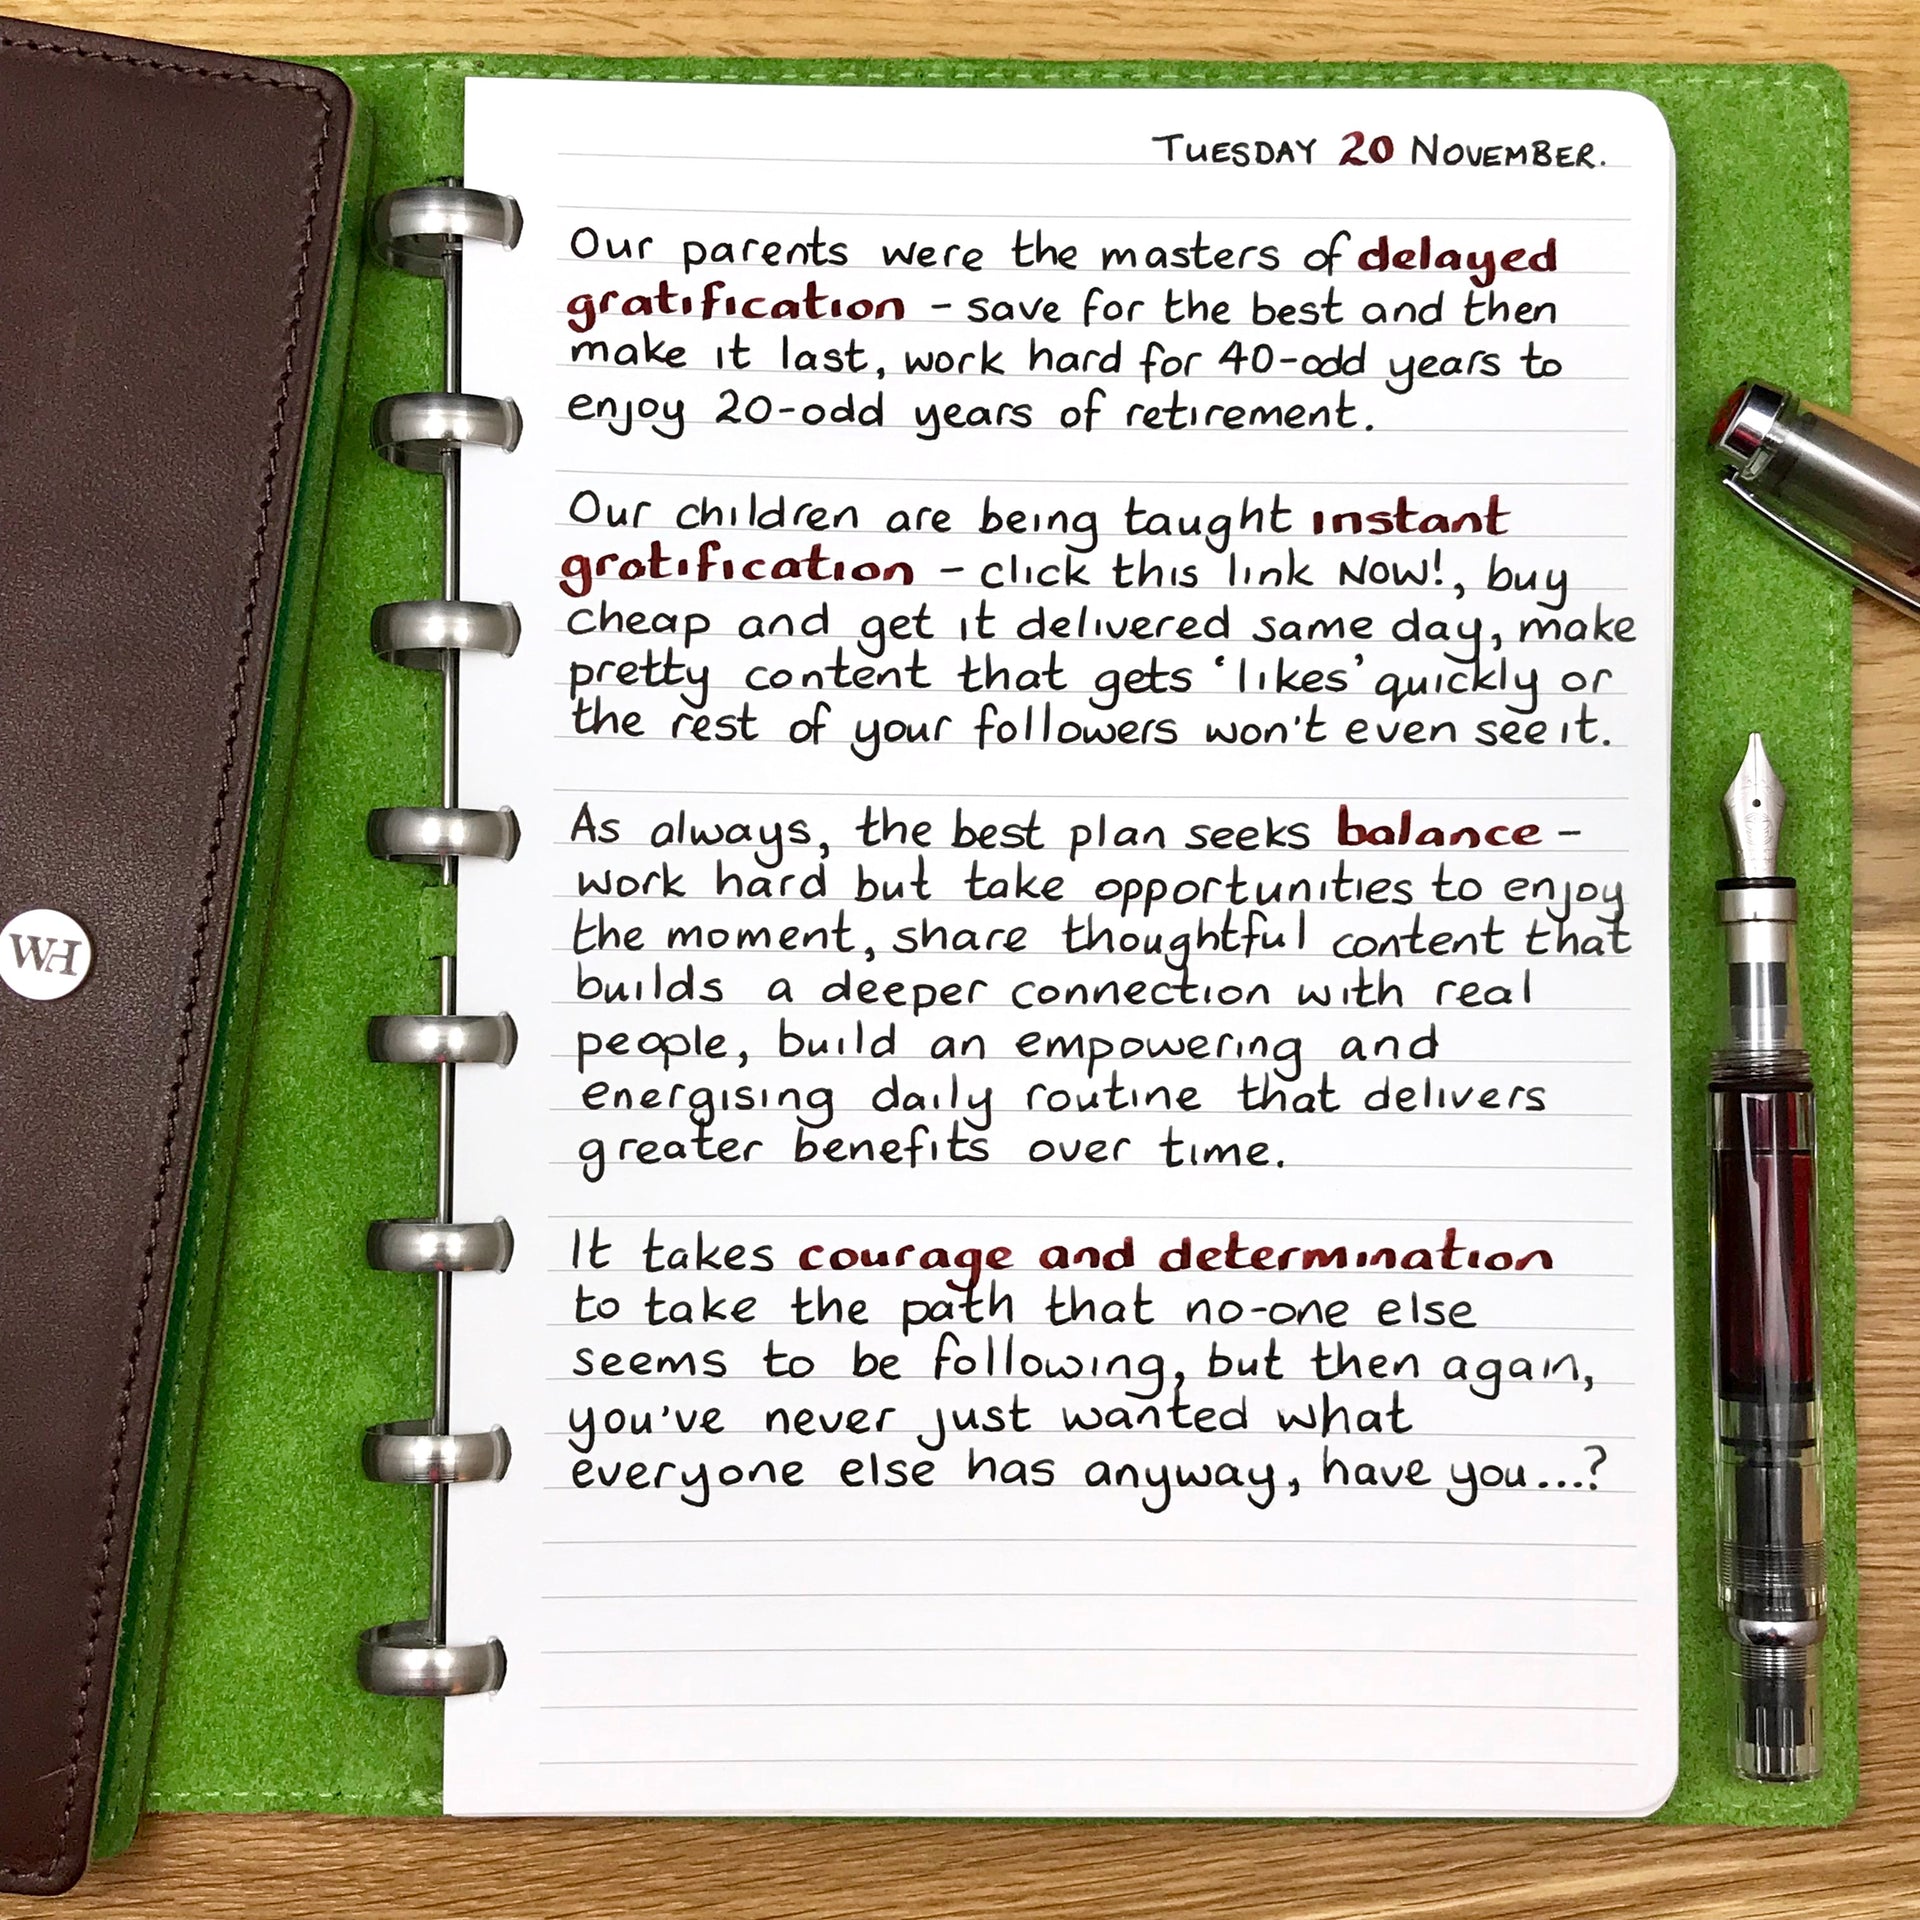 TUESDAY 20 NOVEMBER.
Our parents were the masters of delayed
gratification – save for the best and then
make it last, work hard for 40-odd years to
enjoy 20-odd years of retirement.
Our children are being taught instant
gratification – click this link NOW!, buy
cheap and get it delivered same day, make
pretty content that gets ‘likes’ quickly or
the rest of your followers won't even see it.
As always, the best plan seeks balance –
work hard but take opportunities to enjoy
the moment, share thoughtful content that
builds a deeper connection with real
people, build an empowering and
energising daily routine that delivers
greater benefits over time.
It takes courage and determination
to take the path that no-one else
seems to be following, but then again,
you've never just wanted what
everyone else has anyway, have you...?
WH